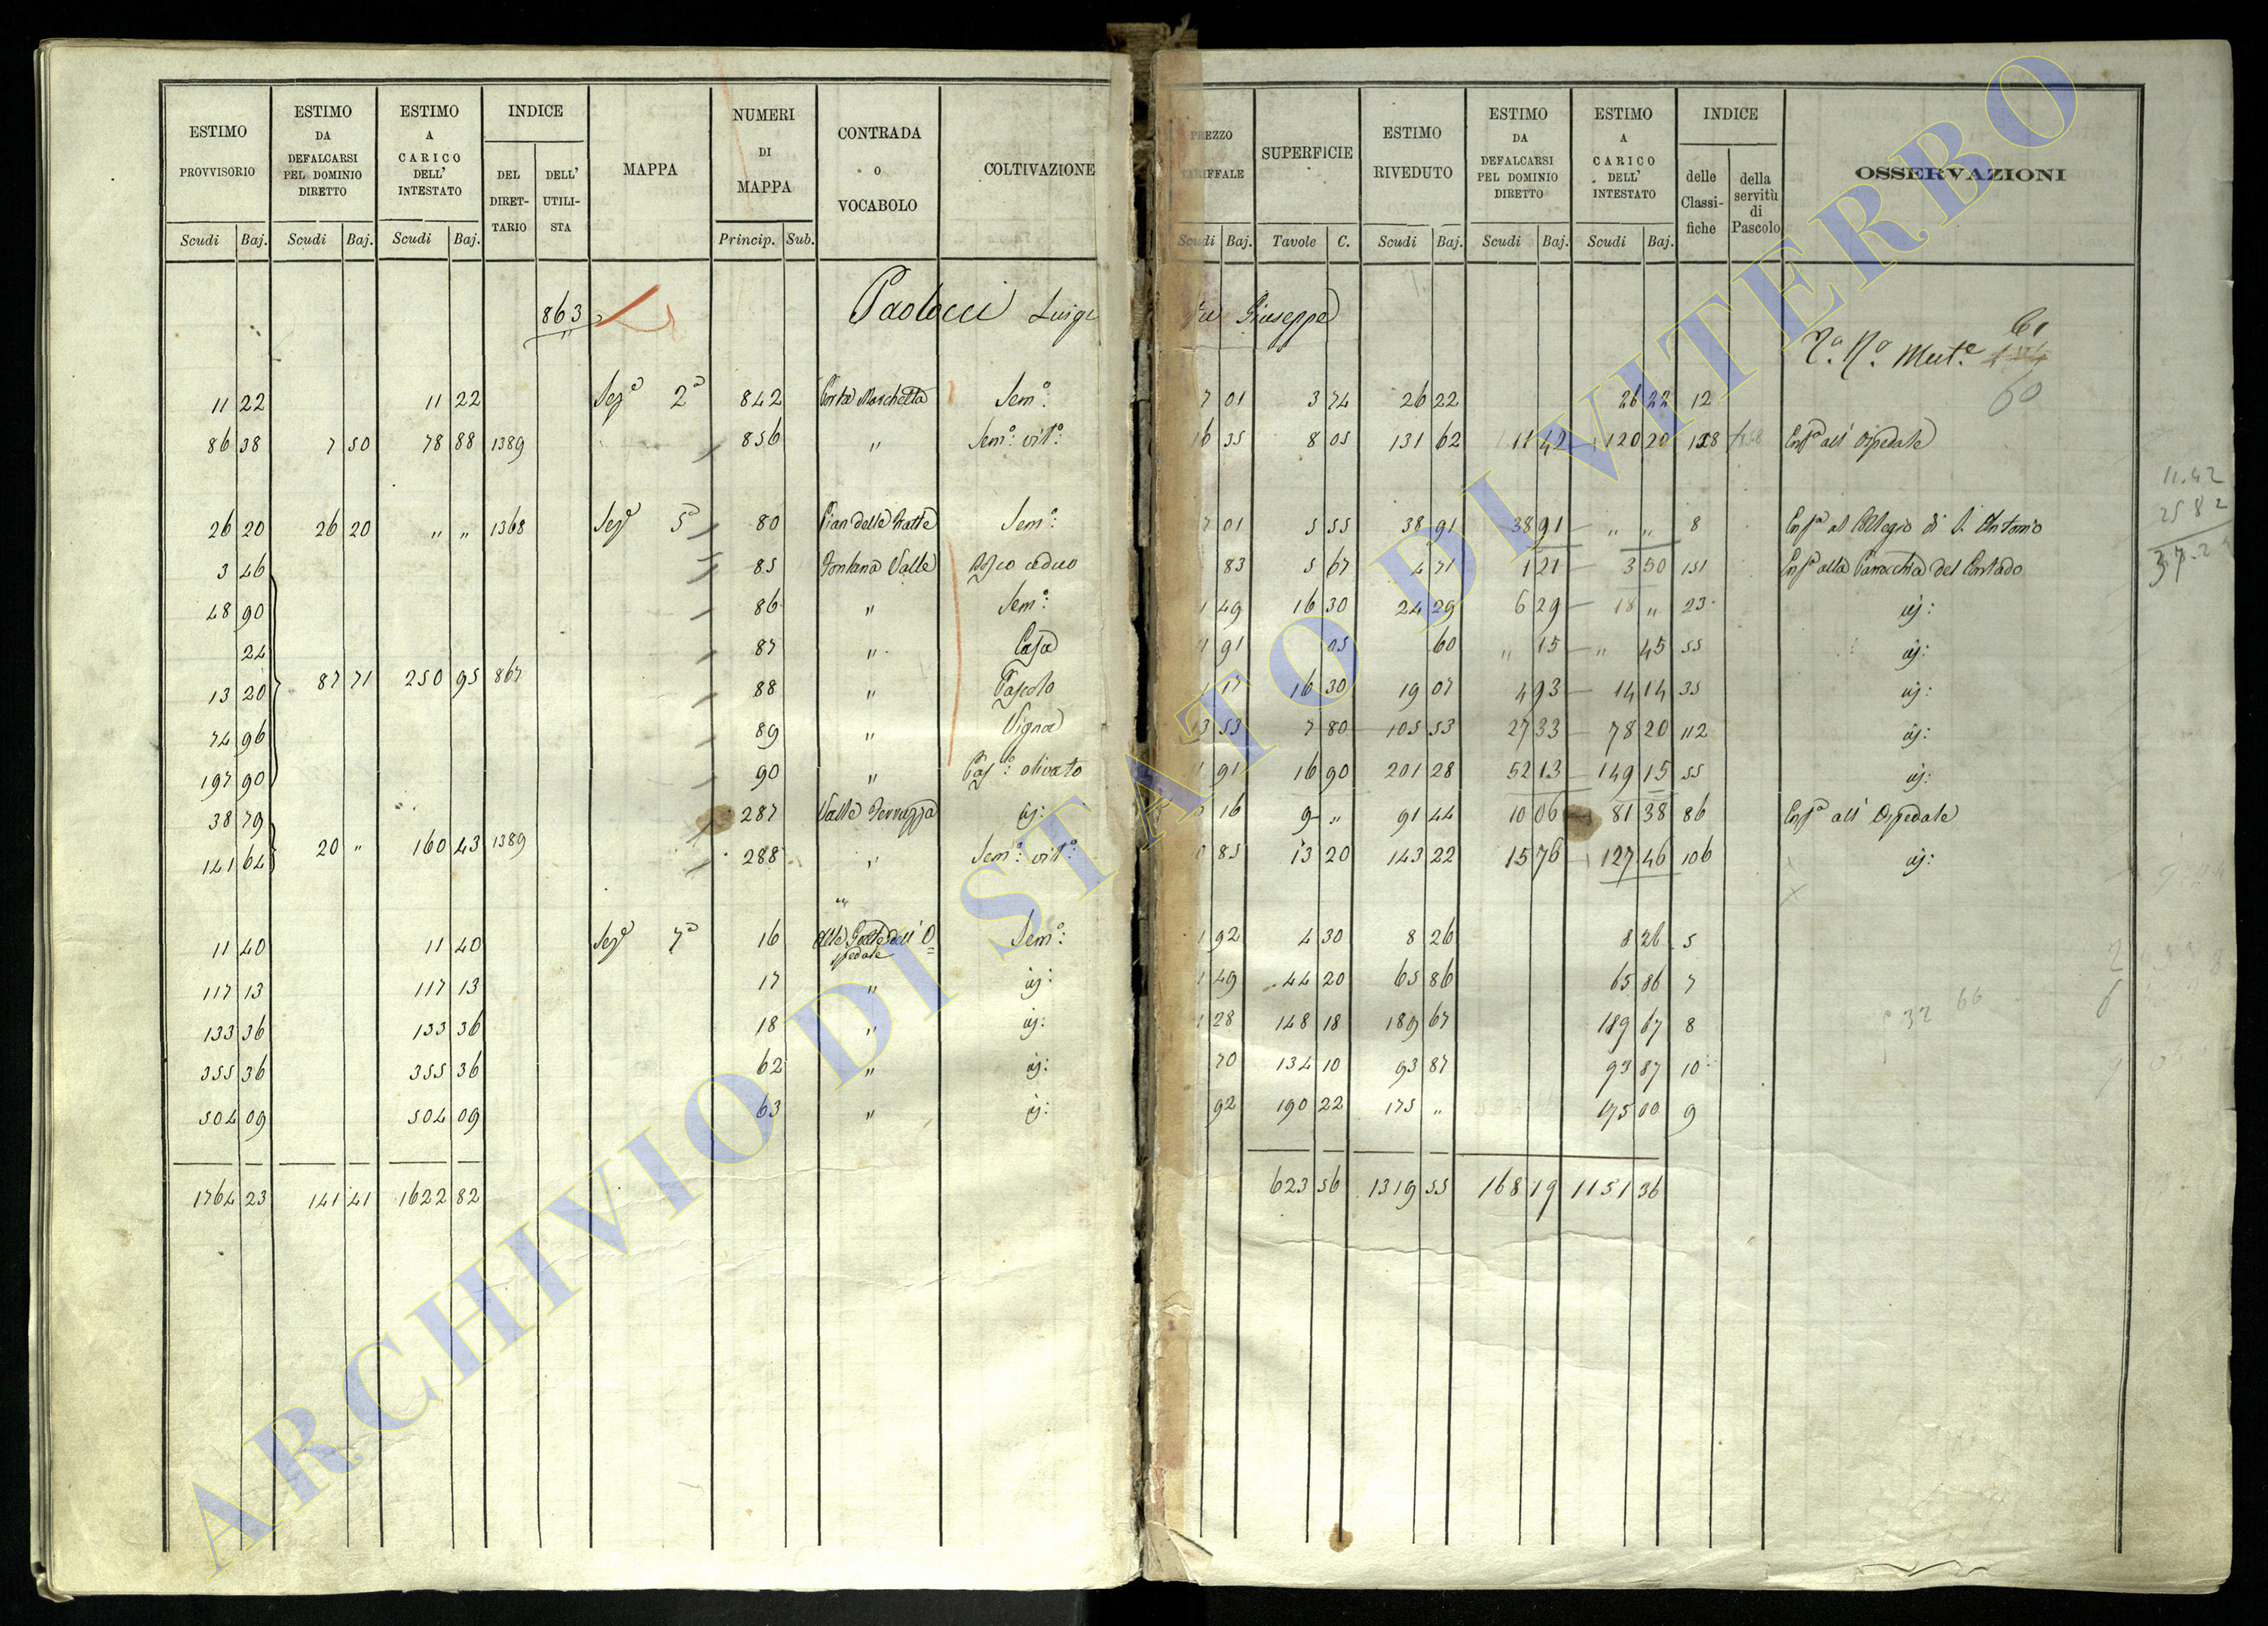 ESTIMO PROVVISORIO Scudi Baj.
ESTIMO DA DEFALCARSI PEL DOMINIO DIRETTO Scudi Baj.
ESTIMO A CARICO DELL' INTESTATO Scudi Baj.
INDICE DEL DIRET-TARIO DELL' UTILI-STA
MAPPA
NUMERI DI MAPPA Princip. Sub.
CONTRADA O VOCABOLO
COLTIVAZIONE
PREZZO TARIFFALE Scudi Baj.
SUPERFICIE Tavole C.
ESTIMO RIVEDUTO Scudi Baj.
ESTIMO DA DEFALCARSI PEL DOMINIO DIRETTO Scudi Baj.
ESTIMO A CARICO DELL' INTESTATO Scudi Baj.
INDICE delle Classi-fiche della servitù di Pascolo
OSSERVAZIONI
863 Paolocci Luigi fu Giuseppe
61
60
11 22 11 22 Seze 2a 842 Sem.o 7 01 3 74 26 22 26 22 12
86 38 7 50 78 88 1389 856 " Sem.o: vit.o: 16 35 8 05 131 62 11 42 120 20 Enf.a all' Ospedale
26 20 26 20 " " 1368 Sez.e 5a 80 Pian delle Sem.o: 7 01 5 55 38 91 38 91 " " 8 Enf.a al Collegio di S. Antonio
3 46 85 Fontana Valle Bosco ceduo 83 5 67 4 71 1 21 3 50 151 Enf.a alla Parrocchia del Contado
48 90 86 " Sem.o: 1 49 16 30 24 29 6 29 18 " 23 id:
24 87 " Casa 91 05 60 " 15 " 45 55 id:
13 20 87 71 250 95 867 88 " Pascolo 1 17 16 30 19 07 4 93 14 14 35 id:
74 96 89 " Vigna 13 53 7 80 105 53 27 33 78 20 112 id:
197 90 90 " Pas.o: olivato 11 91 16 90 201 28 52 13 149 15 55 id:
38 79 287 Valle id: 16 9 " 91 44 10 06 81 38 86 Enf.a all' Ospedale
141 64 20 " 160 43 1389 288 " Sem.o: vit.o: 85 13 20 143 22 15 76 127 46 106 id:
11 40 11 40 Sez.e 7a 16 dell' Ospedale Sem.o: 1 92 4 30 8 26 8 26 5
117 13 117 13 17 " id: 1 49 44 20 65 86 65 86 7
133 36 133 36 18 " id: 1 28 148 18 189 67 189 67 8
355 36 355 36 62 " id: 70 134 10 93 87 93 87 10
504 09 504 09 63 " id: 92 190 22 175 " 175 00 9
1764 23 141 41 1622 82 623 56 1319 55 168 19 1151 36
11.42
25 82
32 66
ARCHIVIO DI STATO DI VITERBO